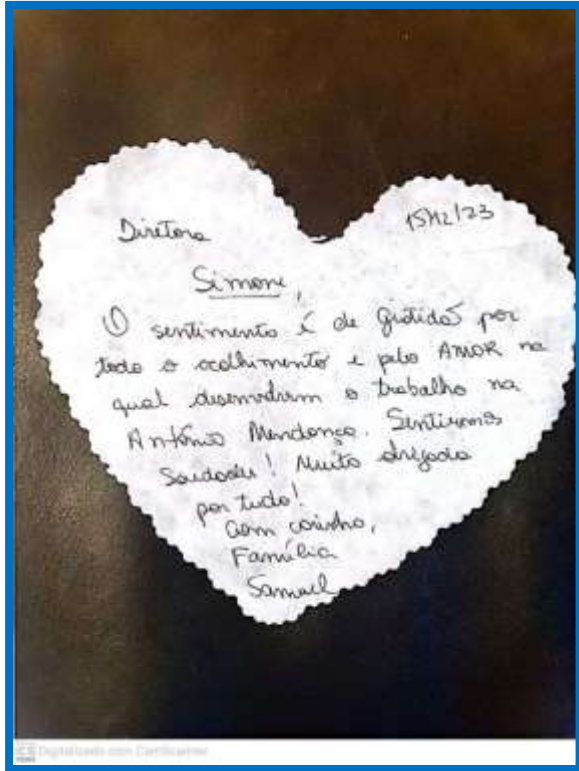 15/12/23
Diretora
Simone,
O sentimento é de gratidão por
todo o acolhimento e pelo AMOR na
qual desenvolvem o trabalho na
Antônio Mendonça. Sentiremos
Saudades! Muito obrigada
por tudo!
Com carinho,
Família
Samuel
CS Digitalizado com CamScanner